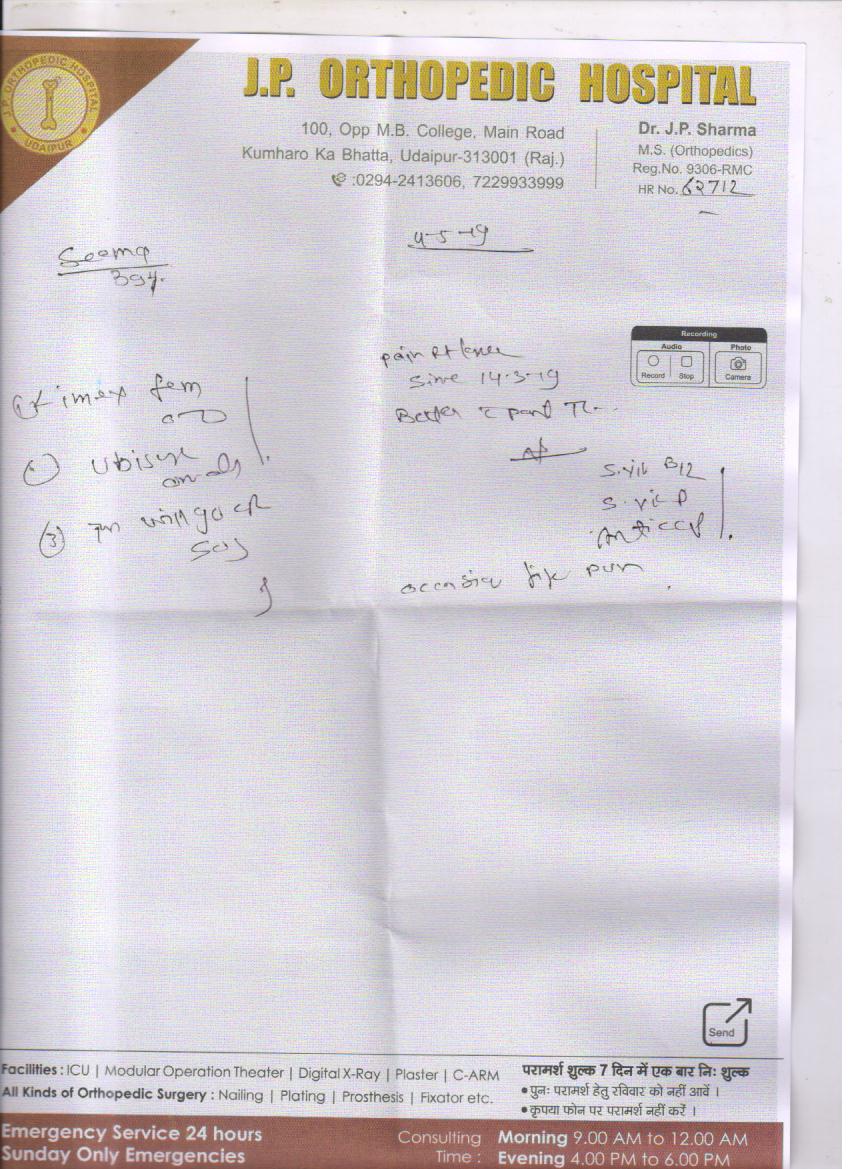 J.P. ORTHOPEDIC HOSPITAL
UDAIPUR
J.P. ORTHOPEDIC HOSPITAL
100, Opp M.B. College, Main Road
Kumharo Ka Bhatta, Udaipur-313001 (Raj.)
:0294-2413606, 7229933999
Dr. J.P. Sharma
M.S. (Orthopedics)
Reg.No. 9306-RMC
HR No. 62712
Seema
39y.
4-5-19
Recording
Audio
Photo
Record
Stop
Camera
pain Rt knee
Since 14-3-19
Better c
fem
OD
(3)
SOS
S. vit B12
S. vit D
Anti CCP
Facilities : ICU | Modular Operation Theater | Digital X-Ray | Plaster | C-ARM
All Kinds of Orthopedic Surgery : Nailing | Plating | Prosthesis | Fixator etc.
Send
परामर्श शुल्क 7 दिन में एक बार निः शुल्क
• पुनः परामर्श हेतु रविवार को नहीं आवें ।
• कृपया फोन पर परामर्श नहीं करें ।
Emergency Service 24 hours
Sunday Only Emergencies
Consulting Time :
Morning 9.00 AM to 12.00 AM
Evening 4.00 PM to 6.00 PM